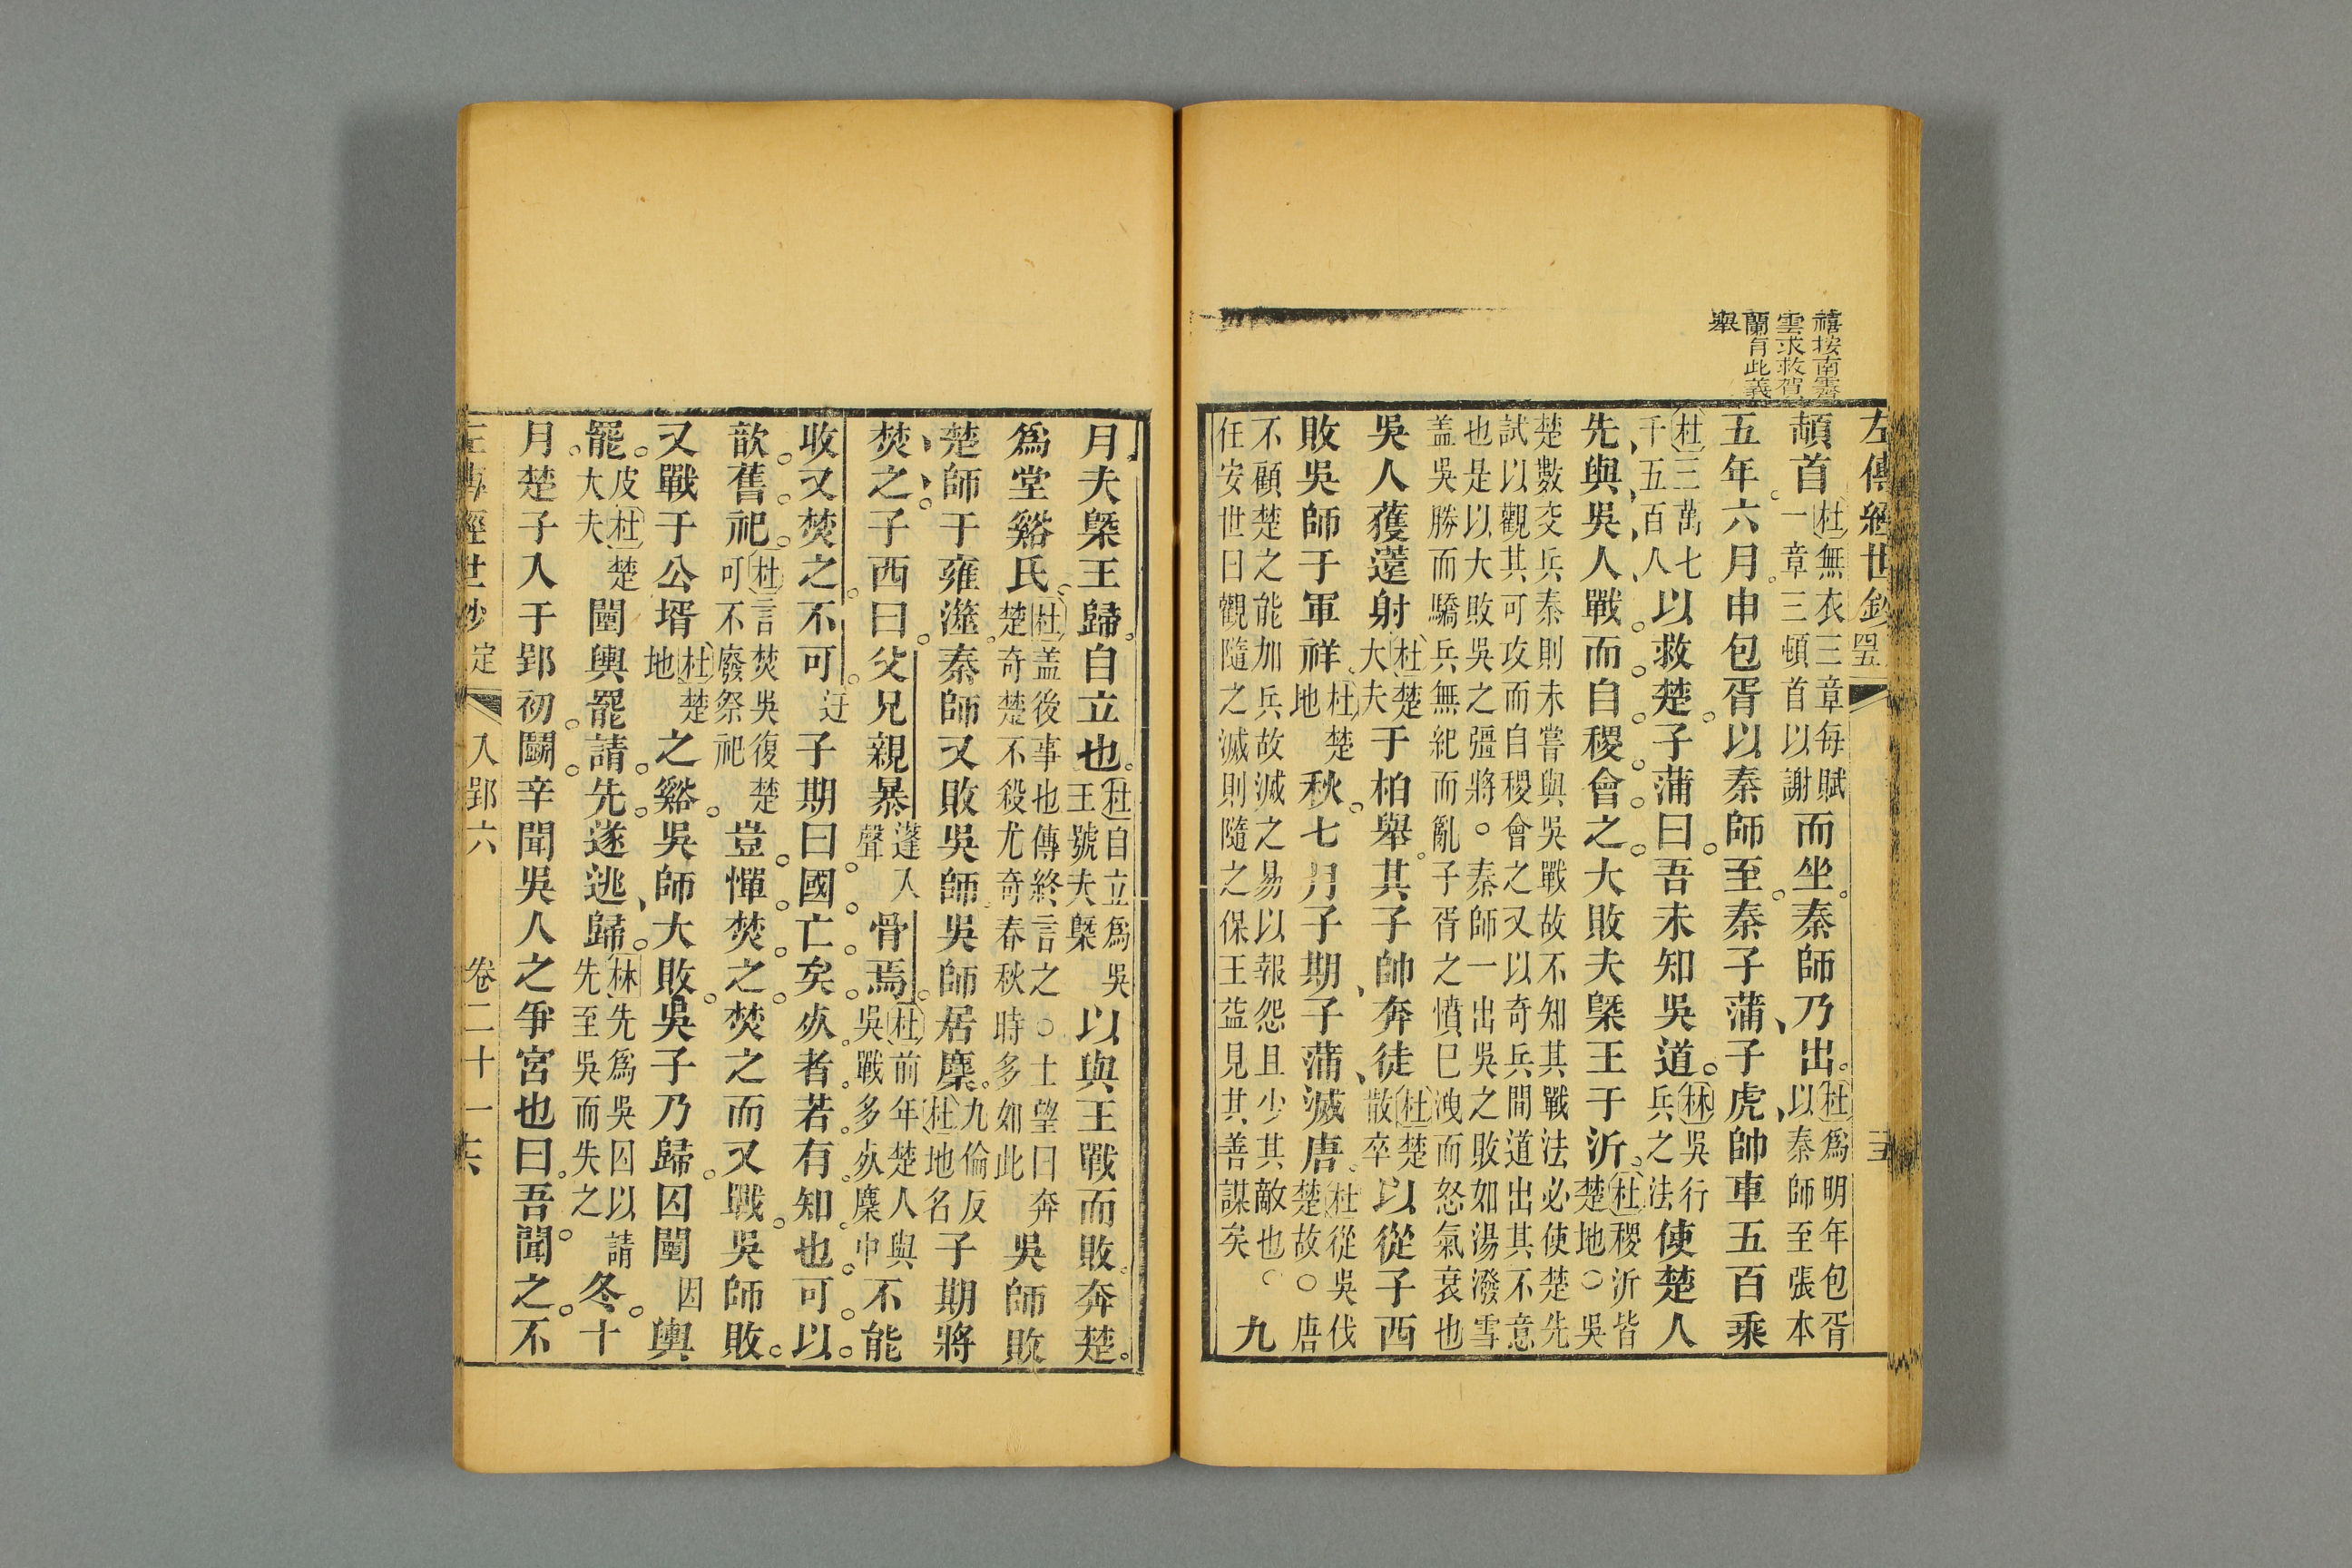 禧按南霽
雲求救賀
蘭有此義
舉
左傳經世鈔
頓首杜無衣三章每賦一章三頓首以謝而坐秦師乃出杜為明年包胥以秦師至張本
五年六月申包胥以秦師至秦子蒲子虎帥車五百乘
杜三萬七千五百人以救楚子蒲曰吾未知吳道林吳行兵之法使楚人
先與吳人戰而自稷會之大敗夫槩王于沂杜稷沂皆楚地○吳
楚數交兵秦則未嘗與吳戰故不知其戰法必使楚先
試以觀其可攻而自稷會之又以奇兵間道出其不意
也是以大敗吳之彊將○秦師一出吳之敗如湯潑雪
蓋吳勝而驕兵無紀而亂子胥之憤已洩而怒氣衰也
吳人獲薳射杜楚大夫于柏舉其子帥奔徒杜楚散卒以從子西
敗吳師于軍祥杜楚地秋七月子期子蒲滅唐杜從吳伐楚故○唐
不顧楚之能加兵故滅之易以報怨且少其敵也○
任安世曰觀隨之滅則隨之保王益見其善謀矣九
月夫槩王歸自立也杜自立為吳王號夫槩以與王戰而敗奔楚
為堂谿氏杜蓋後事也傳終言之○士望曰奔楚奇楚不殺尤奇春秋時多如此吳師敗
楚師于雍澨秦師又敗吳師吳師居麇九倫反杜地名子期將
焚之子西曰父兄親暴蓬入聲骨焉杜前年楚人與吳戰多死麇中不能
收又焚之不可迂子期曰國亡矣死者若有知也可以
歆舊祀杜言焚吳復楚可不廢祭祀豈憚焚之焚之而又戰吳師敗
又戰于公壻杜楚地之谿吳師大敗吳子乃歸囚闉因輿
罷皮杜楚大夫闉輿罷請先遂逃歸林先為吳囚以請先至吳而失之冬十
月楚子入于郢初鬭辛聞吳人之爭宮也曰吾聞之不
左傳經世鈔 定 入郢六 卷二十一